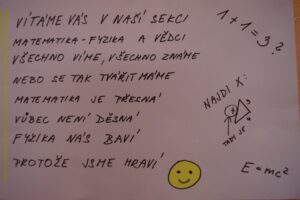 VÍTÁME VÁS V NAŠÍ SEKCI
MATEMATIKA-FYZIKA A VĚDCI
VŠECHNO VÍME, VŠECHNO ZNÁME
NEBO SE TAK TVÁŘIT MÁME
MATEMATIKA JE PŘESNÁ
VŮBEC NENÍ DĚSNÁ
FYZIKA NÁS BAVÍ
PROTOŽE JSME HRAVÍ
1+1=3?
NAJDI X:
X
3
4
TADY JE
E=mc²